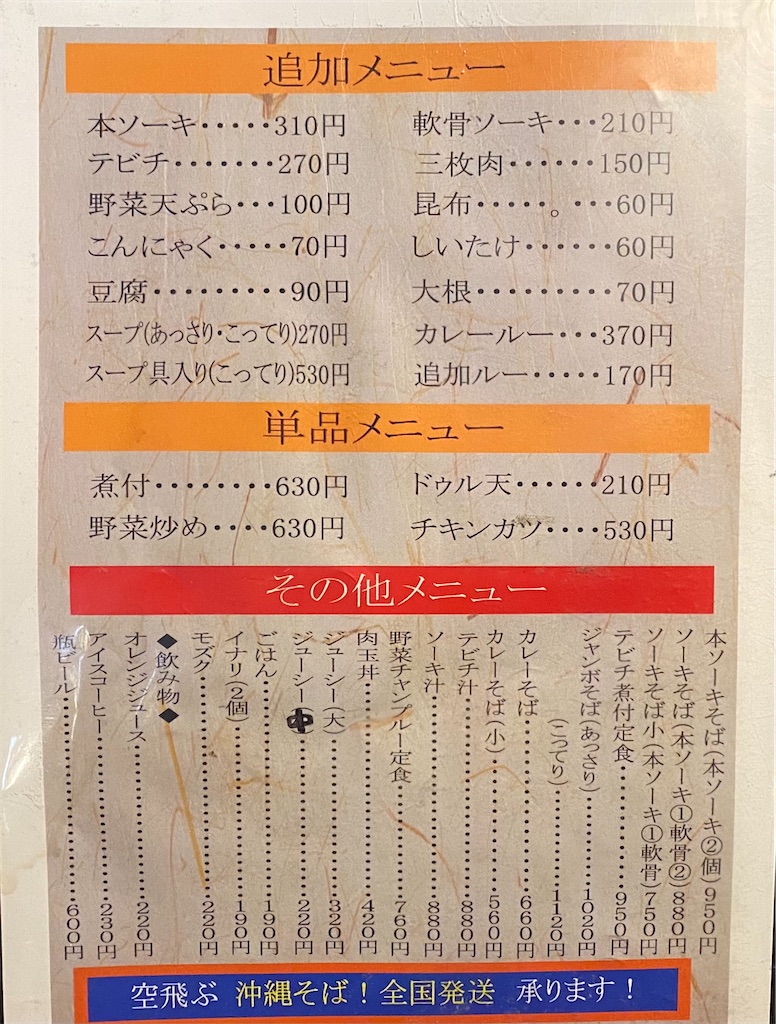 追加メニュー
本ソーキ・・・・・310円
軟骨ソーキ・・・210円
テビチ・・・・・・・270円
三枚肉・・・・・・150円
野菜天ぷら・・・100円
昆布・・・・・。・・・60円
こんにゃく・・・・・70円
しいたけ・・・・・・60円
豆腐・・・・・・・・・90円
大根・・・・・・・・・70円
スープ(あっさり・こってり)270円
カレールー・・・370円
スープ具入り(こってり)530円
追加ルー・・・・・170円
単品メニュー
煮付・・・・・・・・630円
ドゥル天・・・・・・210円
野菜炒め・・・・630円
チキンカツ・・・・530円
その他メニュー
本ソーキそば(本ソーキ②個)950円
ソーキそば(本ソーキ①軟骨②)880円
ソーキそば小(本ソーキ①軟骨)750円
テビチ煮付定食・・・・・・・・950円
ジャンボそば(あっさり)・・・・・・・・1020円
(こってり)・・・・・・・・1120円
カレーそば・・・・・・・・660円
カレーそば(小)・・・・・・・・560円
テビチ汁・・・・・・・・880円
ソーキ汁・・・・・・・・880円
野菜チャンプルー定食・・・・・・・・760円
肉玉丼・・・・・・・・420円
ジューシー(大)・・・・・・・・320円
ジューシー中・・・・・・・・220円
ごはん・・・・・・・・190円
イナリ(2個)・・・・・・・・190円
モズク・・・・・・・・220円
◆飲み物◆
オレンジジュース・・・・・・・・220円
アイスコーヒー・・・・・・・・230円
瓶ビール・・・・・・・・600円
空飛ぶ 沖縄そば！全国発送 承ります！